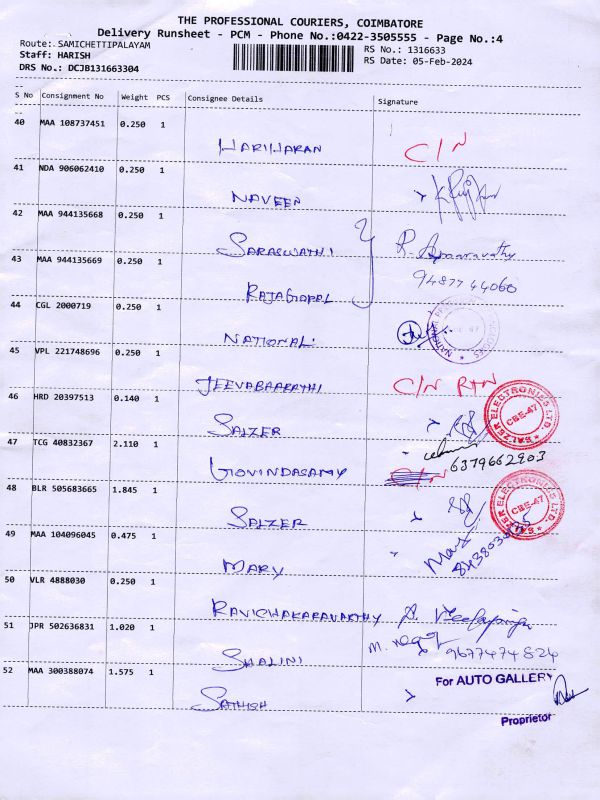 THE PROFESSIONAL COURIERS, COIMBATORE
Delivery Runsheet - PCM - Phone No.:0422-3505555 - Page No.:4
Route: SAMICHETTIPALAYAM
RS No.: 1316633
Staff: HARISH
RS Date: 05-Feb-2024
DRS No.: DCJB131663304
S No Consignment No Weight PCS Consignee Details Signature
40 MAA 108737451 0.250 1
HARIHARAN C/N
41 NDA 906062410 0.250 1
NAVEEN
42 MAA 944135668 0.250 1
SARASWATHI
43 MAA 944135669 0.250 1
9487744060
RAJAGOPAL
44 CGL 2000719 0.250 1
NATIONAL
45 VPL 221748696 0.250 1
JEEVABAARATHI C/N RTN
46 HRD 20397513 0.140 1
SALZER
SALZER ELECTRONICS LTD. CBE-47
47 TCG 40832367 2.110 1
GOVINDASAMY C/N 6379662903
48 BLR 505683665 1.845 1
SALZER
SALZER ELECTRONICS LTD. CBE-47
49 MAA 104096045 0.475 1
MARY Mary
50 VLR 4888030 0.250 1
RAVICHAKARAVARTHY
51 JPR 502636831 1.020 1
SHALINI 9677474824
52 MAA 300388074 1.575 1
For AUTO GALLERY
SATHISH
Proprietor